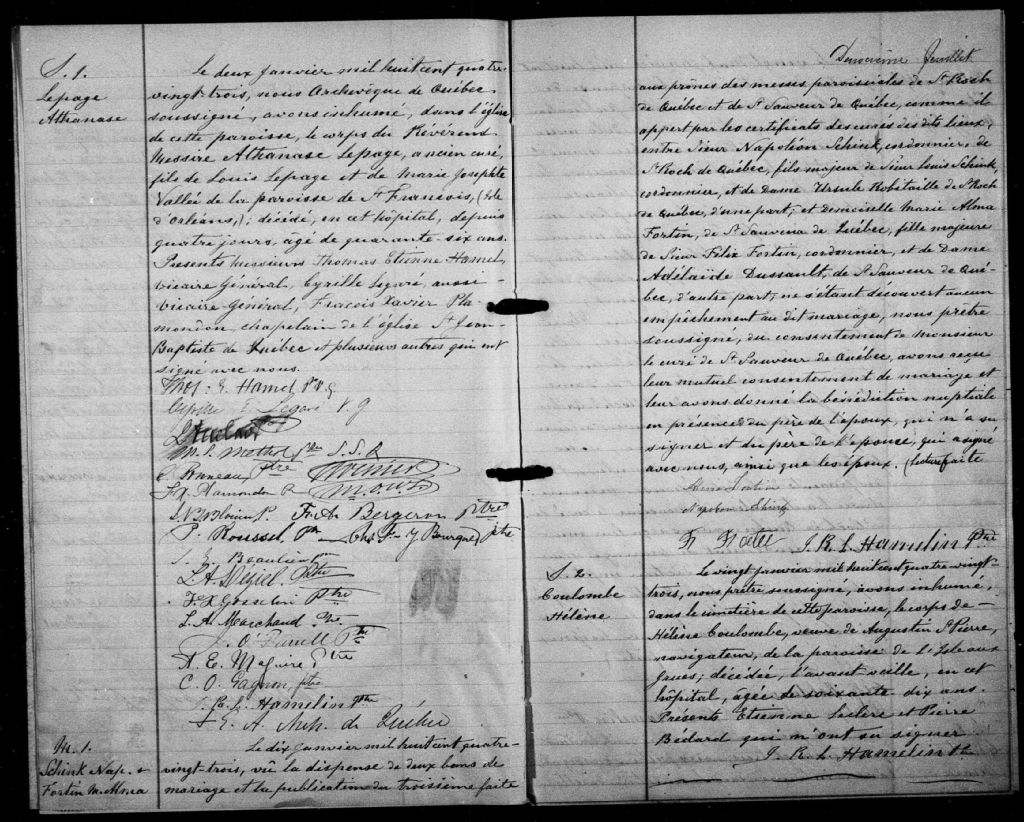 S. 1.
Lepage
Athanase
Le deux janvier mil huit cent quatre-
vingt-trois, nous Archevêque de Québec
soussigné, avons inhumé, dans l'église
de cette paroisse, le corps du Révérend
Messire Athanase Lepage, ancien curé,
fils de Louis Lepage et de Marie Josephte
Vallée de la paroisse de St François, (Isle
d'Orléans,); décédé, en cet hôpital, depuis
quatre jours, âgé de quarante-six ans.
Présents Messieurs Thomas Etienne Hamel,
vicaire Général, Cyrille Légaré, aussi
vicaire Général, Fracois Xavier Pla-
mondon, chapelain de l'église St Jean
Baptiste de Québec et plusieurs autres qui ont
signé avec nous.
Thos. E. Hamel Ptre V.G
E. Légaré V. G
Ptre S. S. &
Ptre
F. X. Plamondon P
Fr. A. Bergeron ptre
P. Roussel Ptre Chs F. J Bourque, ptre
J. E. Beaulieu Ptre
Ptre
F. X Gosselin Ptre
L. A. Marchand Ptre
J. O'Farrell Ptre
A. E. Maguire Ptre
C. O. Gagnon, ptre
J. R. L. Hamelin Ptre
+ E. A. Arch. de Québec
M. 1.
Schink Nap. &
Fortin M. Alma
Le dix janvier mil huit cent quatre-
vingt-trois, vû la dispense de deux bans de
mariage et la publication du troisième faite
Deuxième feuillet
aux prônes des messes paroissiales de St Roch
de Québec et de St Sauveur de Québec, comme il
appert par les certificats des curés des dits lieux,
entre Sieur Napoléon Schink, cordonnier, de
St Roch de Québec, fils majeur de Sieur Louis Schink,
cordonnier, et de Dame Ursule Robitaille de St Roch
de Québec, d'une part; et Demoiselle Marie Alma
Fortin, de St Sauveur de Québec, fille majeure
de Sieur Félix Fortin, cordonnier, et de Dame
Adélaïde Dussault, de St Sauveur de Qué-
bec, d'autre part; ne s'étant découvert aucun
empêchement au dit mariage, nous prêtre
soussigné, du consentement de Monsieur
le curé de St Sauveur de Québec, avons reçu
leur mutuel consentement de mariage et
leur avons donné la bénédiction nuptiale
en présence du père de l'époux, qui n'a su
signer et du père de l'épouse, qui a signé
avec nous, ainsi que les époux. (lecture faite
Alma Fortin
Napoleon Shink
J. R. L. Hamelin Ptre
S. 2.
Coulombe
Hélène
Le vingt janvier mil huit cent quatre vingt-
trois, nous prêtre soussigné, avons inhumé,
dans le cimetière de cette paroisse, le corps de
Hélène Coulombe, veuve de Augustin St Pierre,
navigateur, de la paroisse de l'Isle aux
Grues; décédée, l'avant veille, en cet
hôpital, agée de soixante dix ans.
Présents Etienne Leclerc et Pierre
Bédard qui n'ont su signer.
J. R. L. Hamelin Ptr